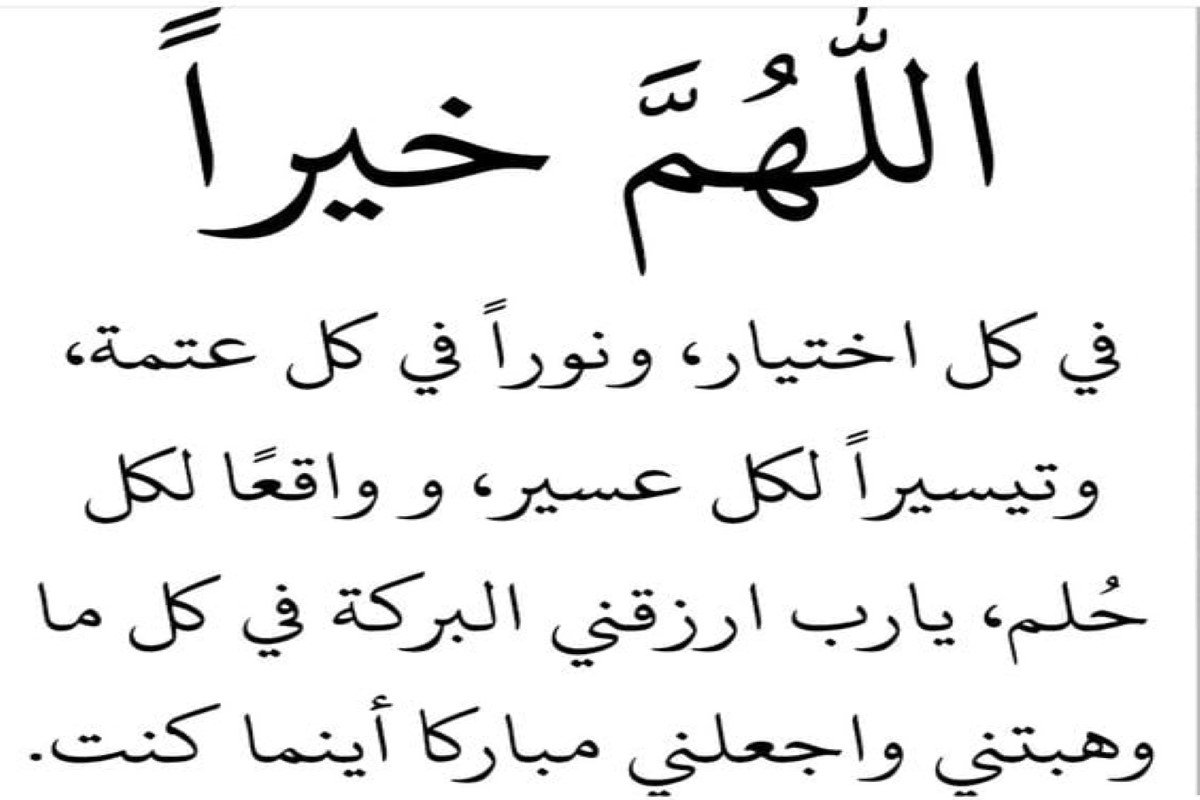 اللّٰهُمَّ خيراً
في كل اختيار، ونوراً في كل عتمة،
وتيسيراً لكل عسير، و واقعًا لكل
حُلم، يارب ارزقني البركة في كل ما
وهبتني واجعلني مباركا أينما كنت.